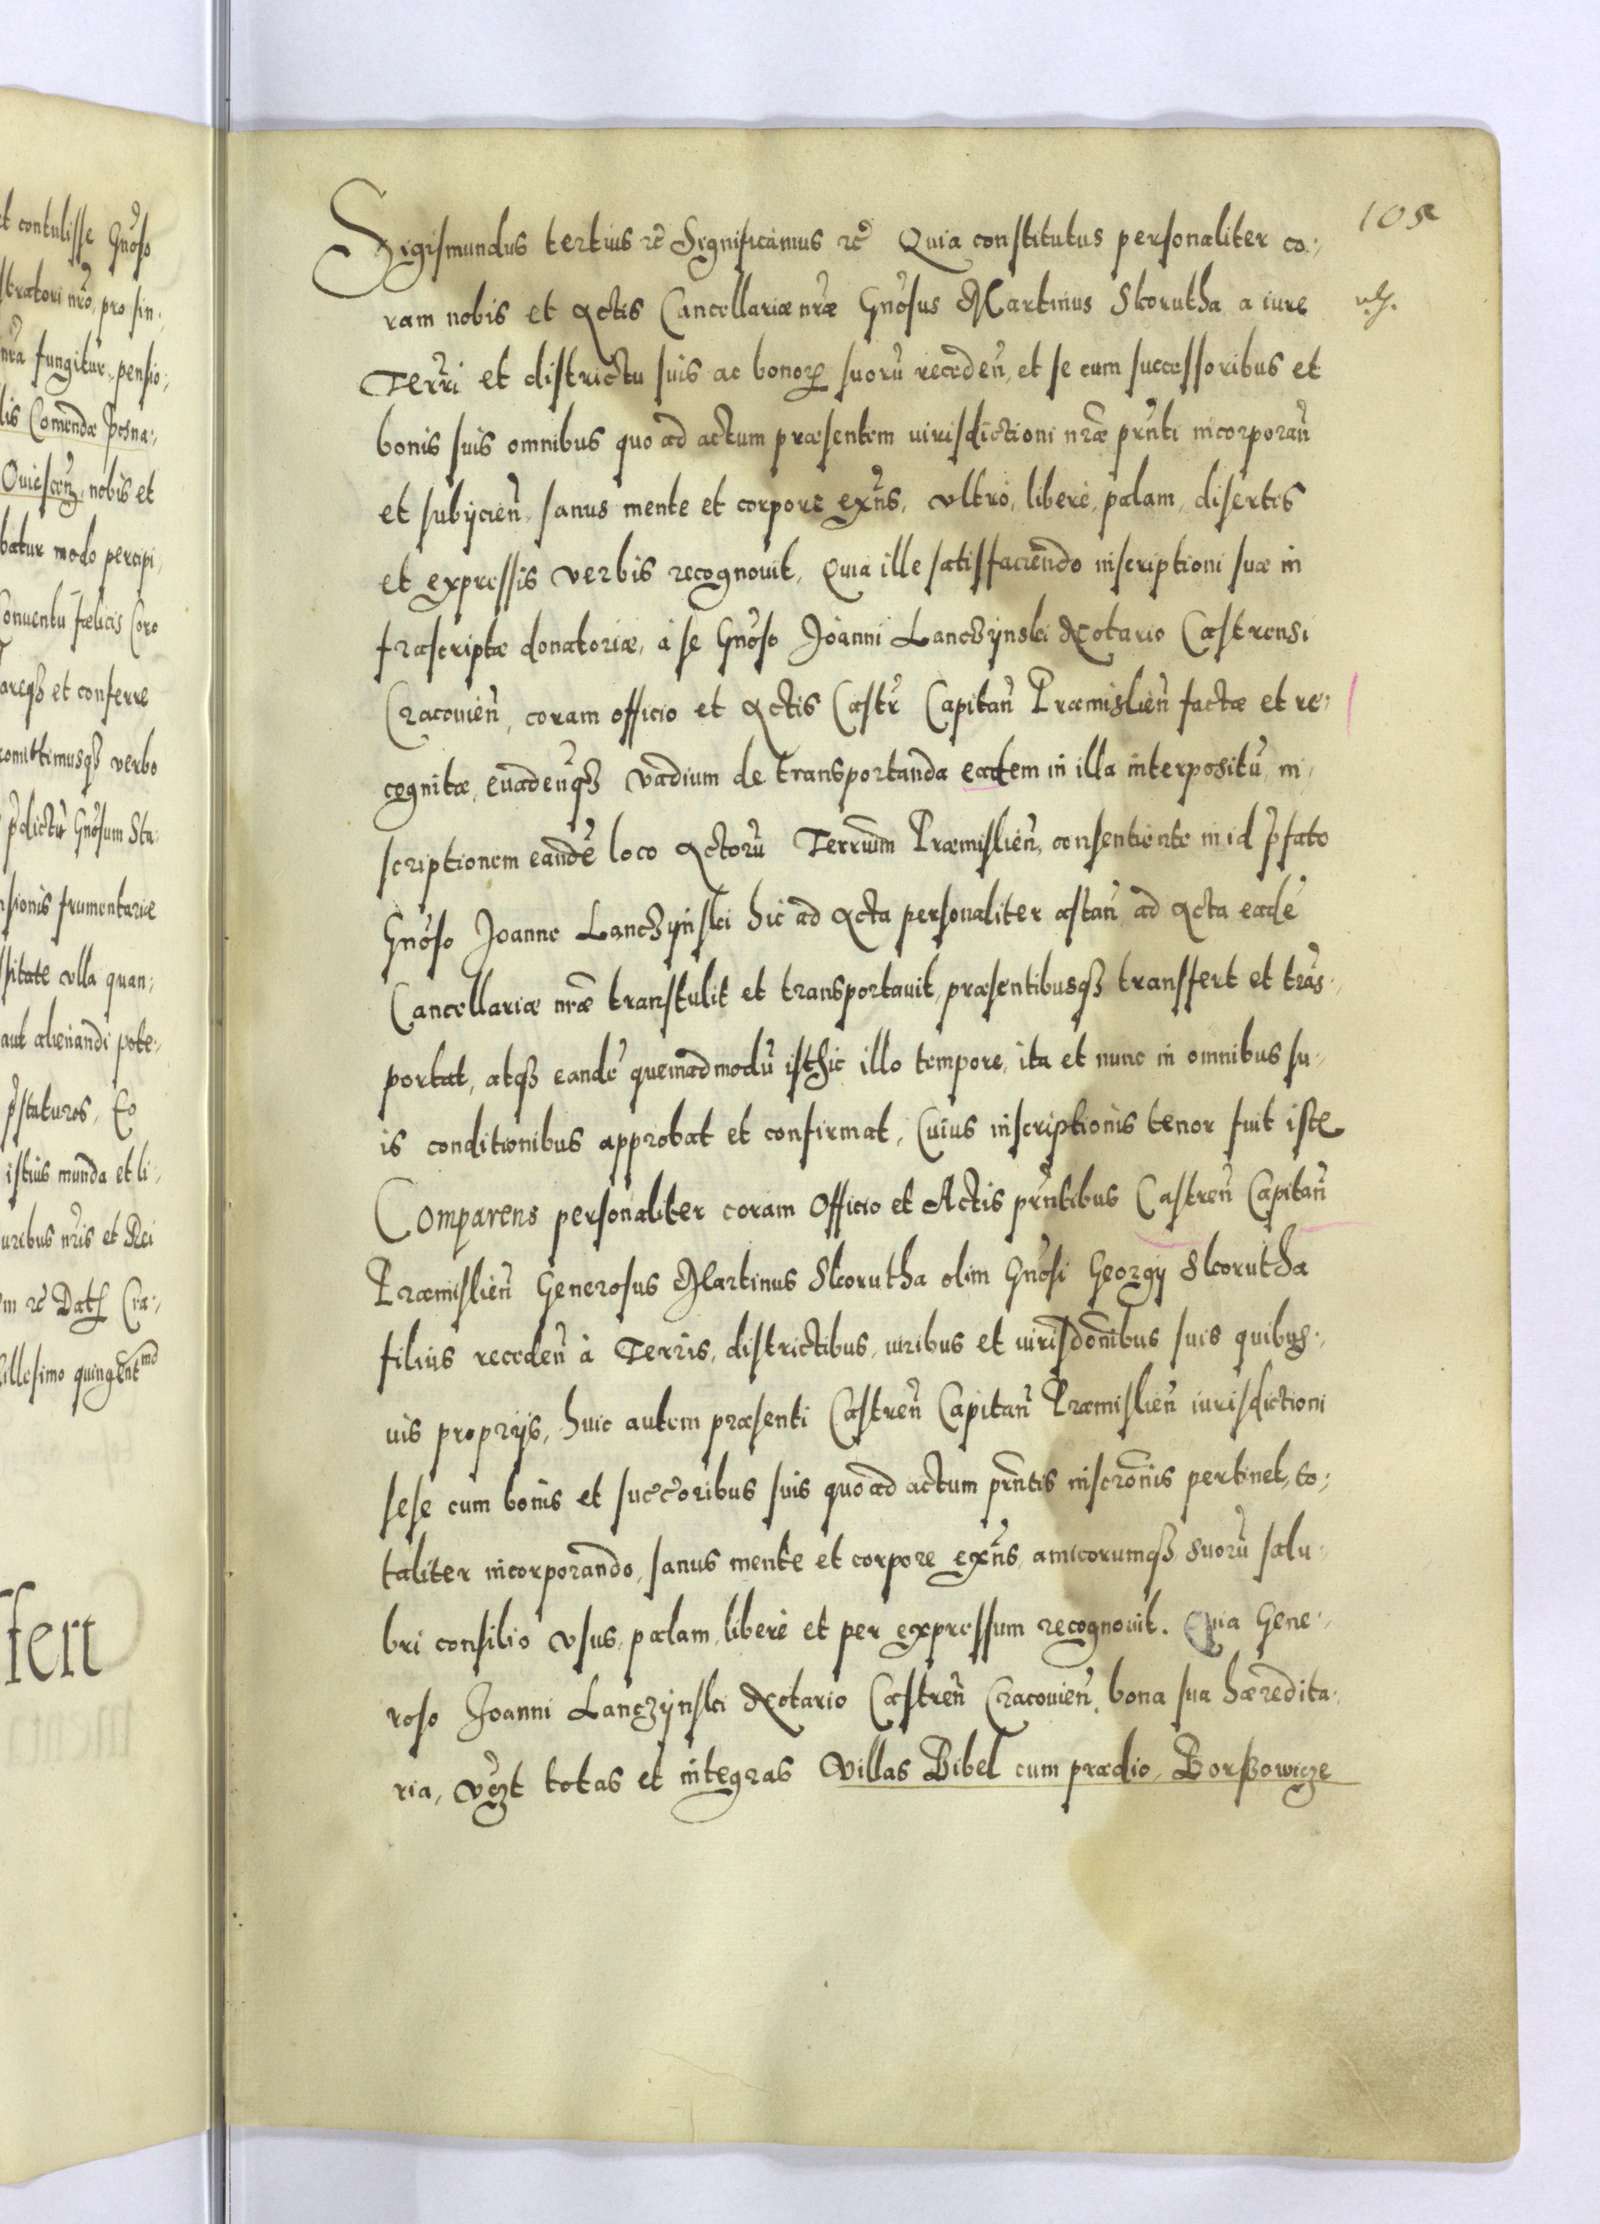 et contulisse Gnõso
stratori nr̃o, pro sin:
nr̃a fungitur, pensio:
lis Comendæ Posna:
nobis et
batur modo percipi
Conventu fælicis Coro
areqȝ et conferre
romittimusqȝ verbo
p̃dictũ Gnõsum Sta:
nsionis frumentariæ
ulla quan:
aut alienandi pote:
p̃staturos, Eo
istius munda et li:
uribus nr̃is et Rei
m ꝛc̃ Datȝ Cra:
illesimo quingent.mo
fert
105
Sigismundus tertius ꝛc̃ Significamus ꝛc̃ Quia constitutus personaliter co:
ram nobis et Actis Cancellariæ nr̃æ Gnõsus Martinus Skorutha a iure
Terr̃i et districtu suis ac bonoꝝ suorũ receden̄, et se cum successoribus et
bonis suis omnibus quo ad actum præsentem iurisdictioni nr̃æ prn̄ti incorporan̄
et subÿcien̄, sanus mente et corpore exn̄s, ultro, libere, palam, disertis
et expressis verbis recognovit, Quia ille satisfaciendo inscriptioni suæ in
frascriptæ donatoriæ, à se Gnõso Joanni Lanczÿnski Notario Castrensi
Cracovien̄, coram officio et Actis Castr̃ Capitan̄ Præmislien̄ factæ et re:
cognitæ, evadenqȝ vadium de transportanda eadem in illa interpositũ, in:
scriptionem eandẽ loco Actorũ Terrũm Præmislien̄, consentiente in id p̃fato
Gnõso Joanne Lanczÿnski hic ad Acta personaliter astan̄ ad Acta eadẽ
Cancellariæ nr̃æ transtulit et transportavit, præsentibusqȝ transfert et trãs:
portat, atqȝ eandẽ quemadmodũ isthic illo tempore, ita et nunc in omnibus su:
is conditionibus approbat et confirmat, Cuius inscriptionis tenor fuit iste
Comparens personaliter coram Officio et Actis prn̄tibus Castren̄ Capitan̄
Præmislien̄ Generosus Martinus Skorutha olim Gnõsi Georgÿ Skorutha
filius receden̄ à Terris, districtibus, iuribus et iurisdõnibus suis quibus:
vis proprÿs, huic autem præsenti Castren̄ Capitan̄ Præmislien̄ iurisdictioni
sese cum bonis et succõribus suis quo ad actum prn̄tis inscrõnis pertinet, to:
taliter incorporando, sanus mente et corpore exn̄s, amicorumqȝ suorũ salu:
bri consilio usus, palam, libere et per expressum recognovit. Quia Gene:
roso Joanni Lanczÿnski Notario Castren̄ Cracovien̄, bona sua hæredita:
ria, vczt totas et integras Villas Bibel cum prædio, Borssowicze